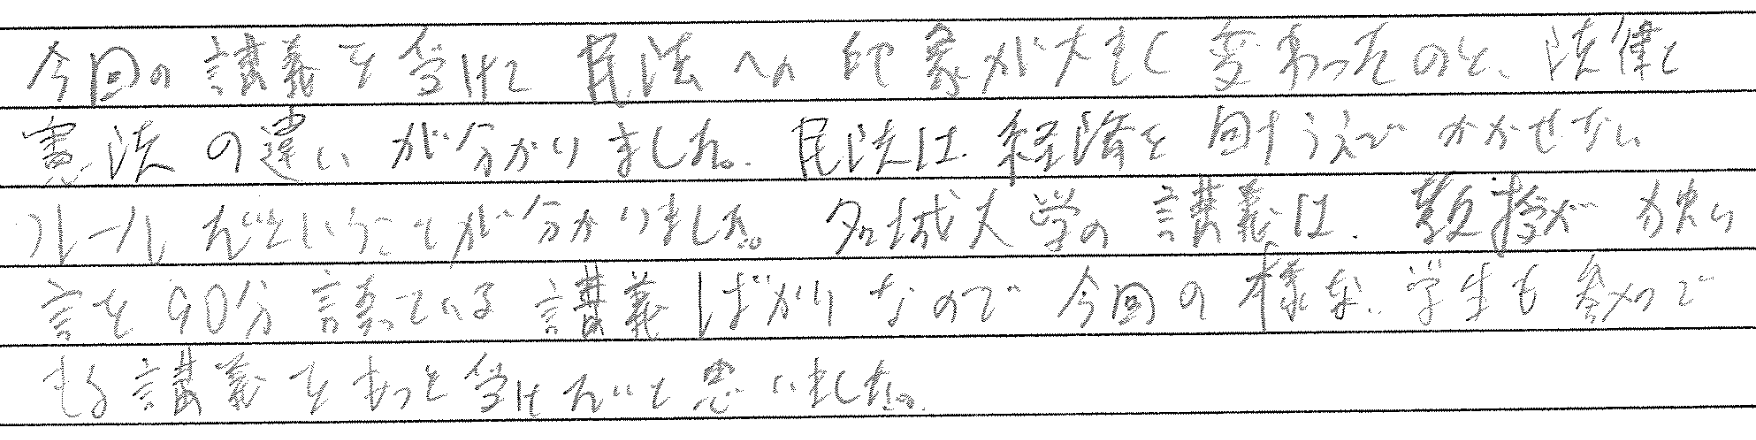 今回の講義を受けて民法への印象が大きく変わったのと、法律と
憲法の違いが分かりました。民法は経済を回すうえでかかせない
ルールだということが分かりました。名城大学の講義は、教授が
を90分話っている講義ばかりなので今回の様な、学生も参加で
きる講義をもっと受けたいと思いました。